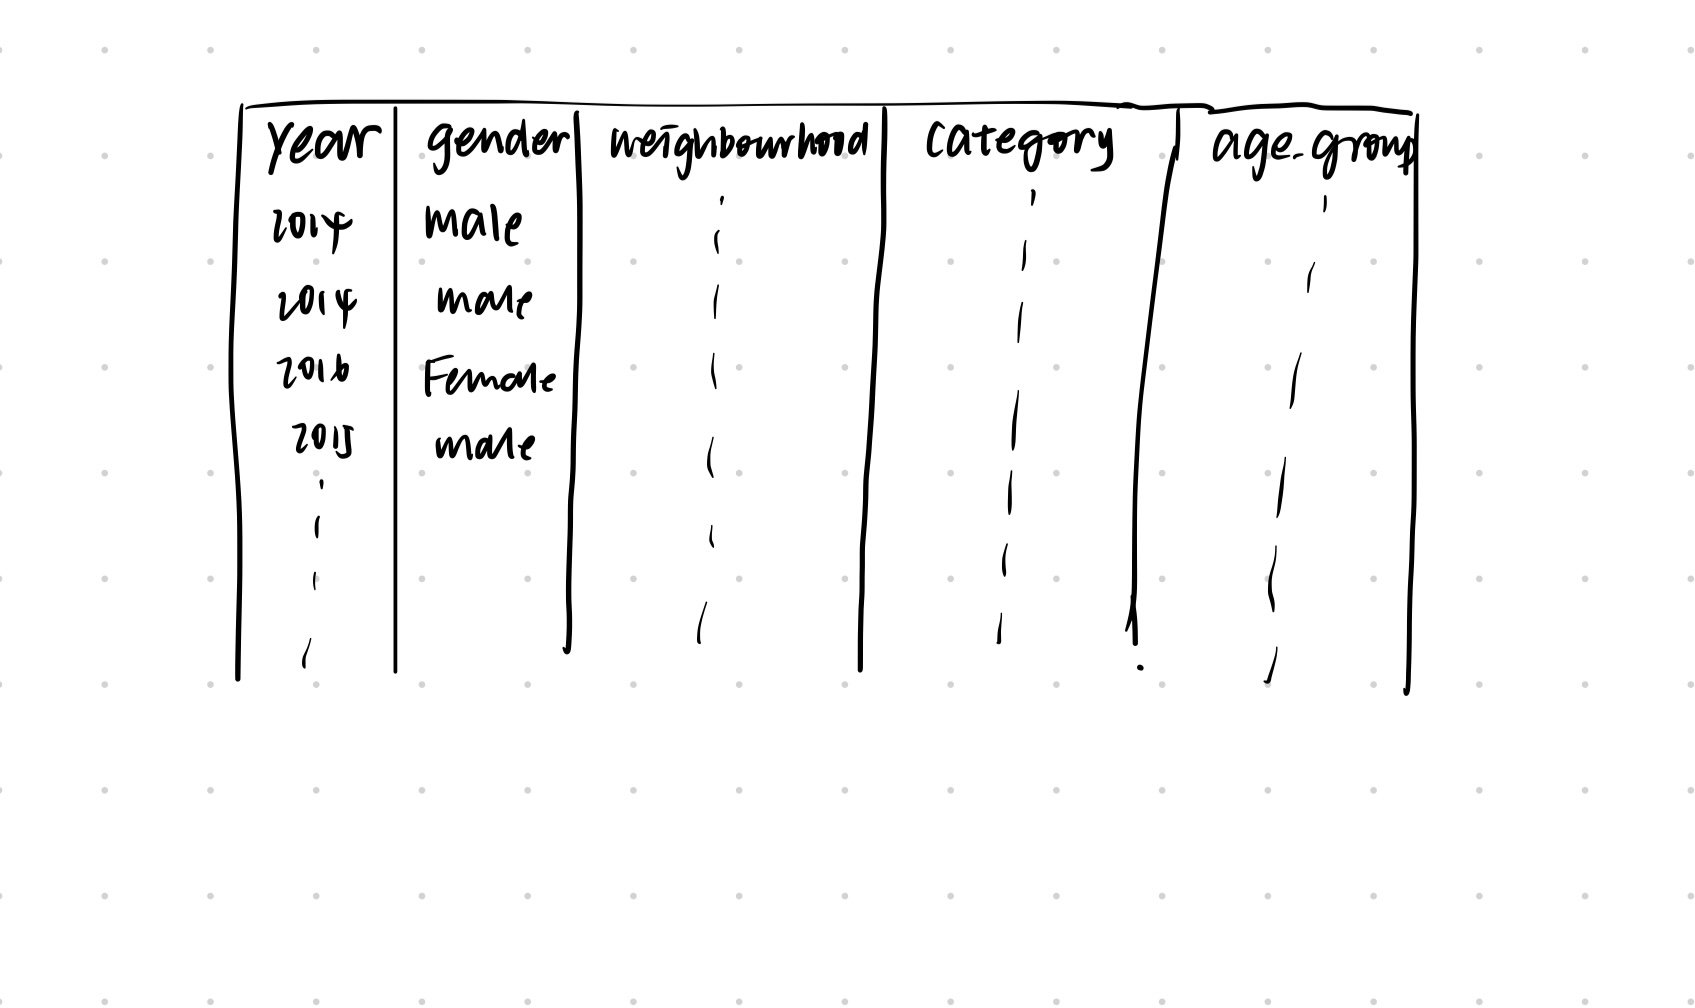 year gender neighbourhood category age_group
2014 male
2014 male
2016 Female
2015 male